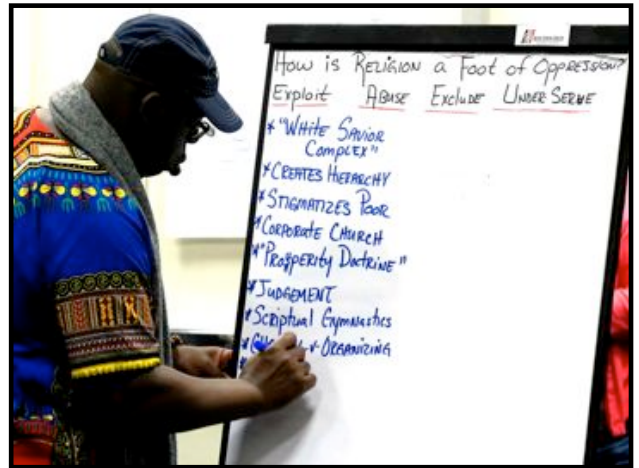 How is Religion a Foot of Oppression?
Exploit Abuse Exclude Under Serve
* "White Savior
Complex"
* Creates Hierarchy
* Stigmatizes Poor
* Corporate Church
* "Prosperity Doctrine"
* Judgement
* Scriptual Gymnastics
* Organizing